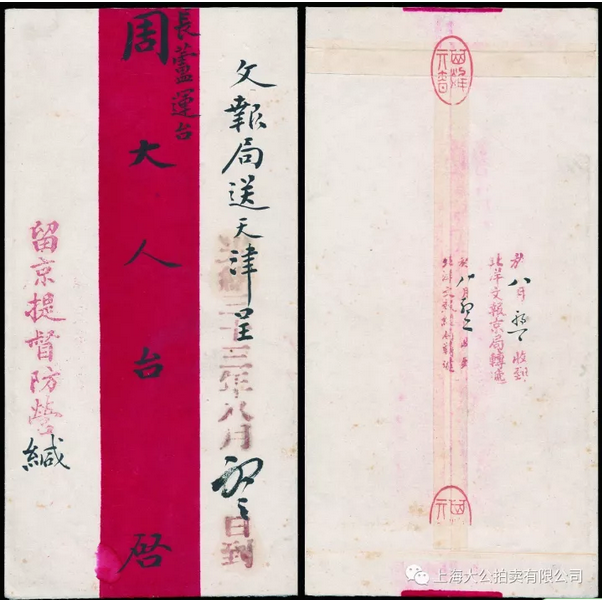 文報局送天津呈
三十三年八月初三日到
長蘆運台
周大人台啓
留京提督防營緘
八月初一收到
北洋文報京局轉遞
八月初
上海大公拍卖有限公司